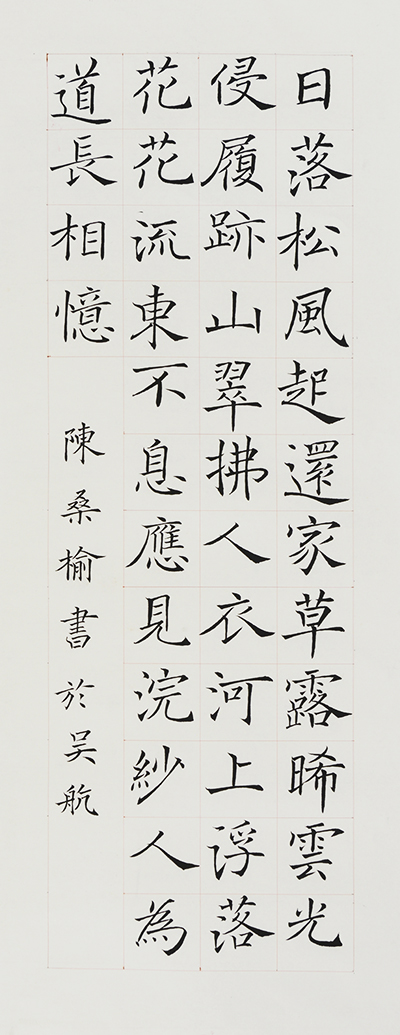 日落松風起還家草露晞雲光
侵履跡山翠拂人衣河上浮落
花花流東不息應見浣紗人為
道長相憶
陳桑榆書於吳航